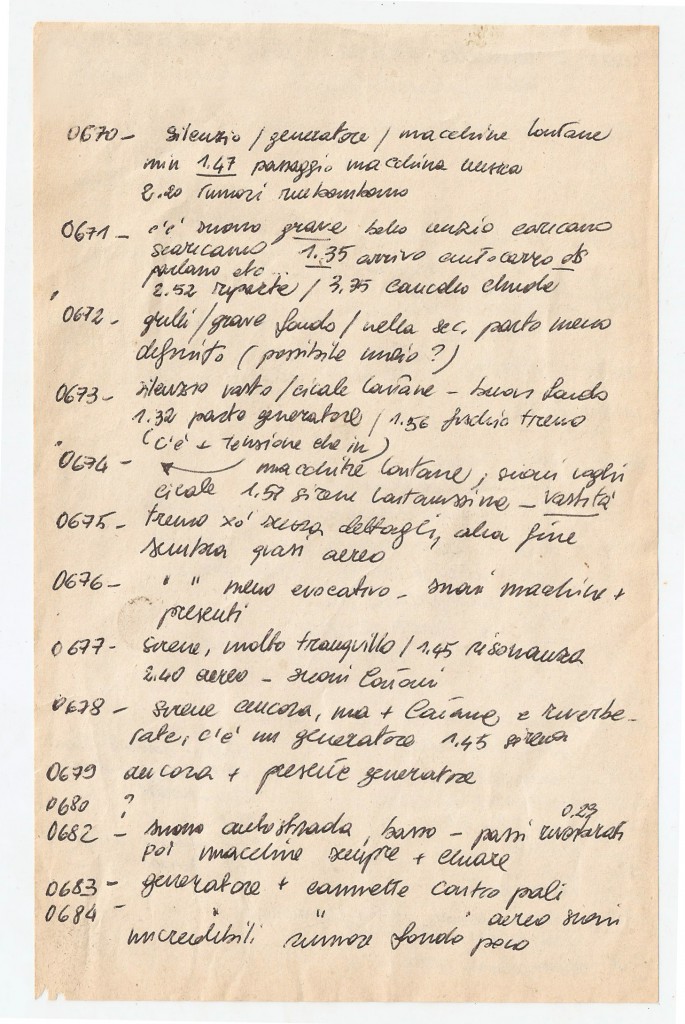 0670 - silenzio / generatore / macchine lontane
min 1.47 passaggio macchina
2.20 rumori rimbombano
0671 - c'è suono grave bello inizio caricano
scaricano 1.35 arrivo autocarro
parlano etc...
2.52 riparte / 3.35 cancello chiude
0672 - grilli / grave fondo / nella sec. parte meno
definito (possibile inizio?)
0673 - silenzio vasto / cicale lontane - buon fondo
1.32 parte generatore / 1.56 fischio treno
(c'è + tensione che in)
0674 - macchine lontane, suoni vaghi
cicale 1.57 sirene lontanissime - vastità
0675 - treno xò senza dettagli, alla fine
sembra quasi aereo
0676 - " " meno evocativo - suoni macchine +
presenti
0677 - sirene, molto tranquillo / 1.45 risonanza
2.40 aereo - suoni lontani
0678 - sirene ancora, ma + lontane e riverbe-
rate, c'è un generatore 1.45 sirena
0679 ancora + presente generatore
0680 ?
0.23
0682 - suono autostrada, basso - passi
poi macchine sempre + chiare
0683 - generatore + cannette contro pali
0684 - " " " aereo suoni
incredibili rumore fondo poco